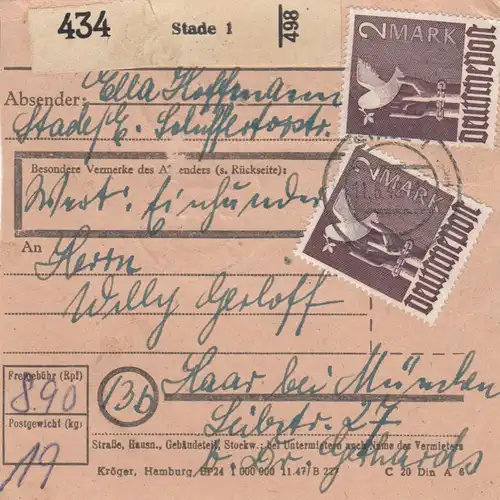 434 Stade 1 498
2 MARK
Deutsche Post
Absender: Ella Hoffmann
Stade/E.
Besondere Vermerke des A senders (s. Rückseite):
Wert: Einhunder
2 MARK
Deutsche Post
An
Herrn
Willy Gerloff
Freigebühr (Rpf)
890
Postgewicht (kg)
19
13b
Haar bei München
Leibstr. 27
Straße, Hausn., Gebäudeteil, Stockw.; bei Untermietern auch Name der Vermieters
b. Dr. Gerhards
Kröger, Hamburg EP24 1 000 000 11.47 B 227 C 20 Din A 6